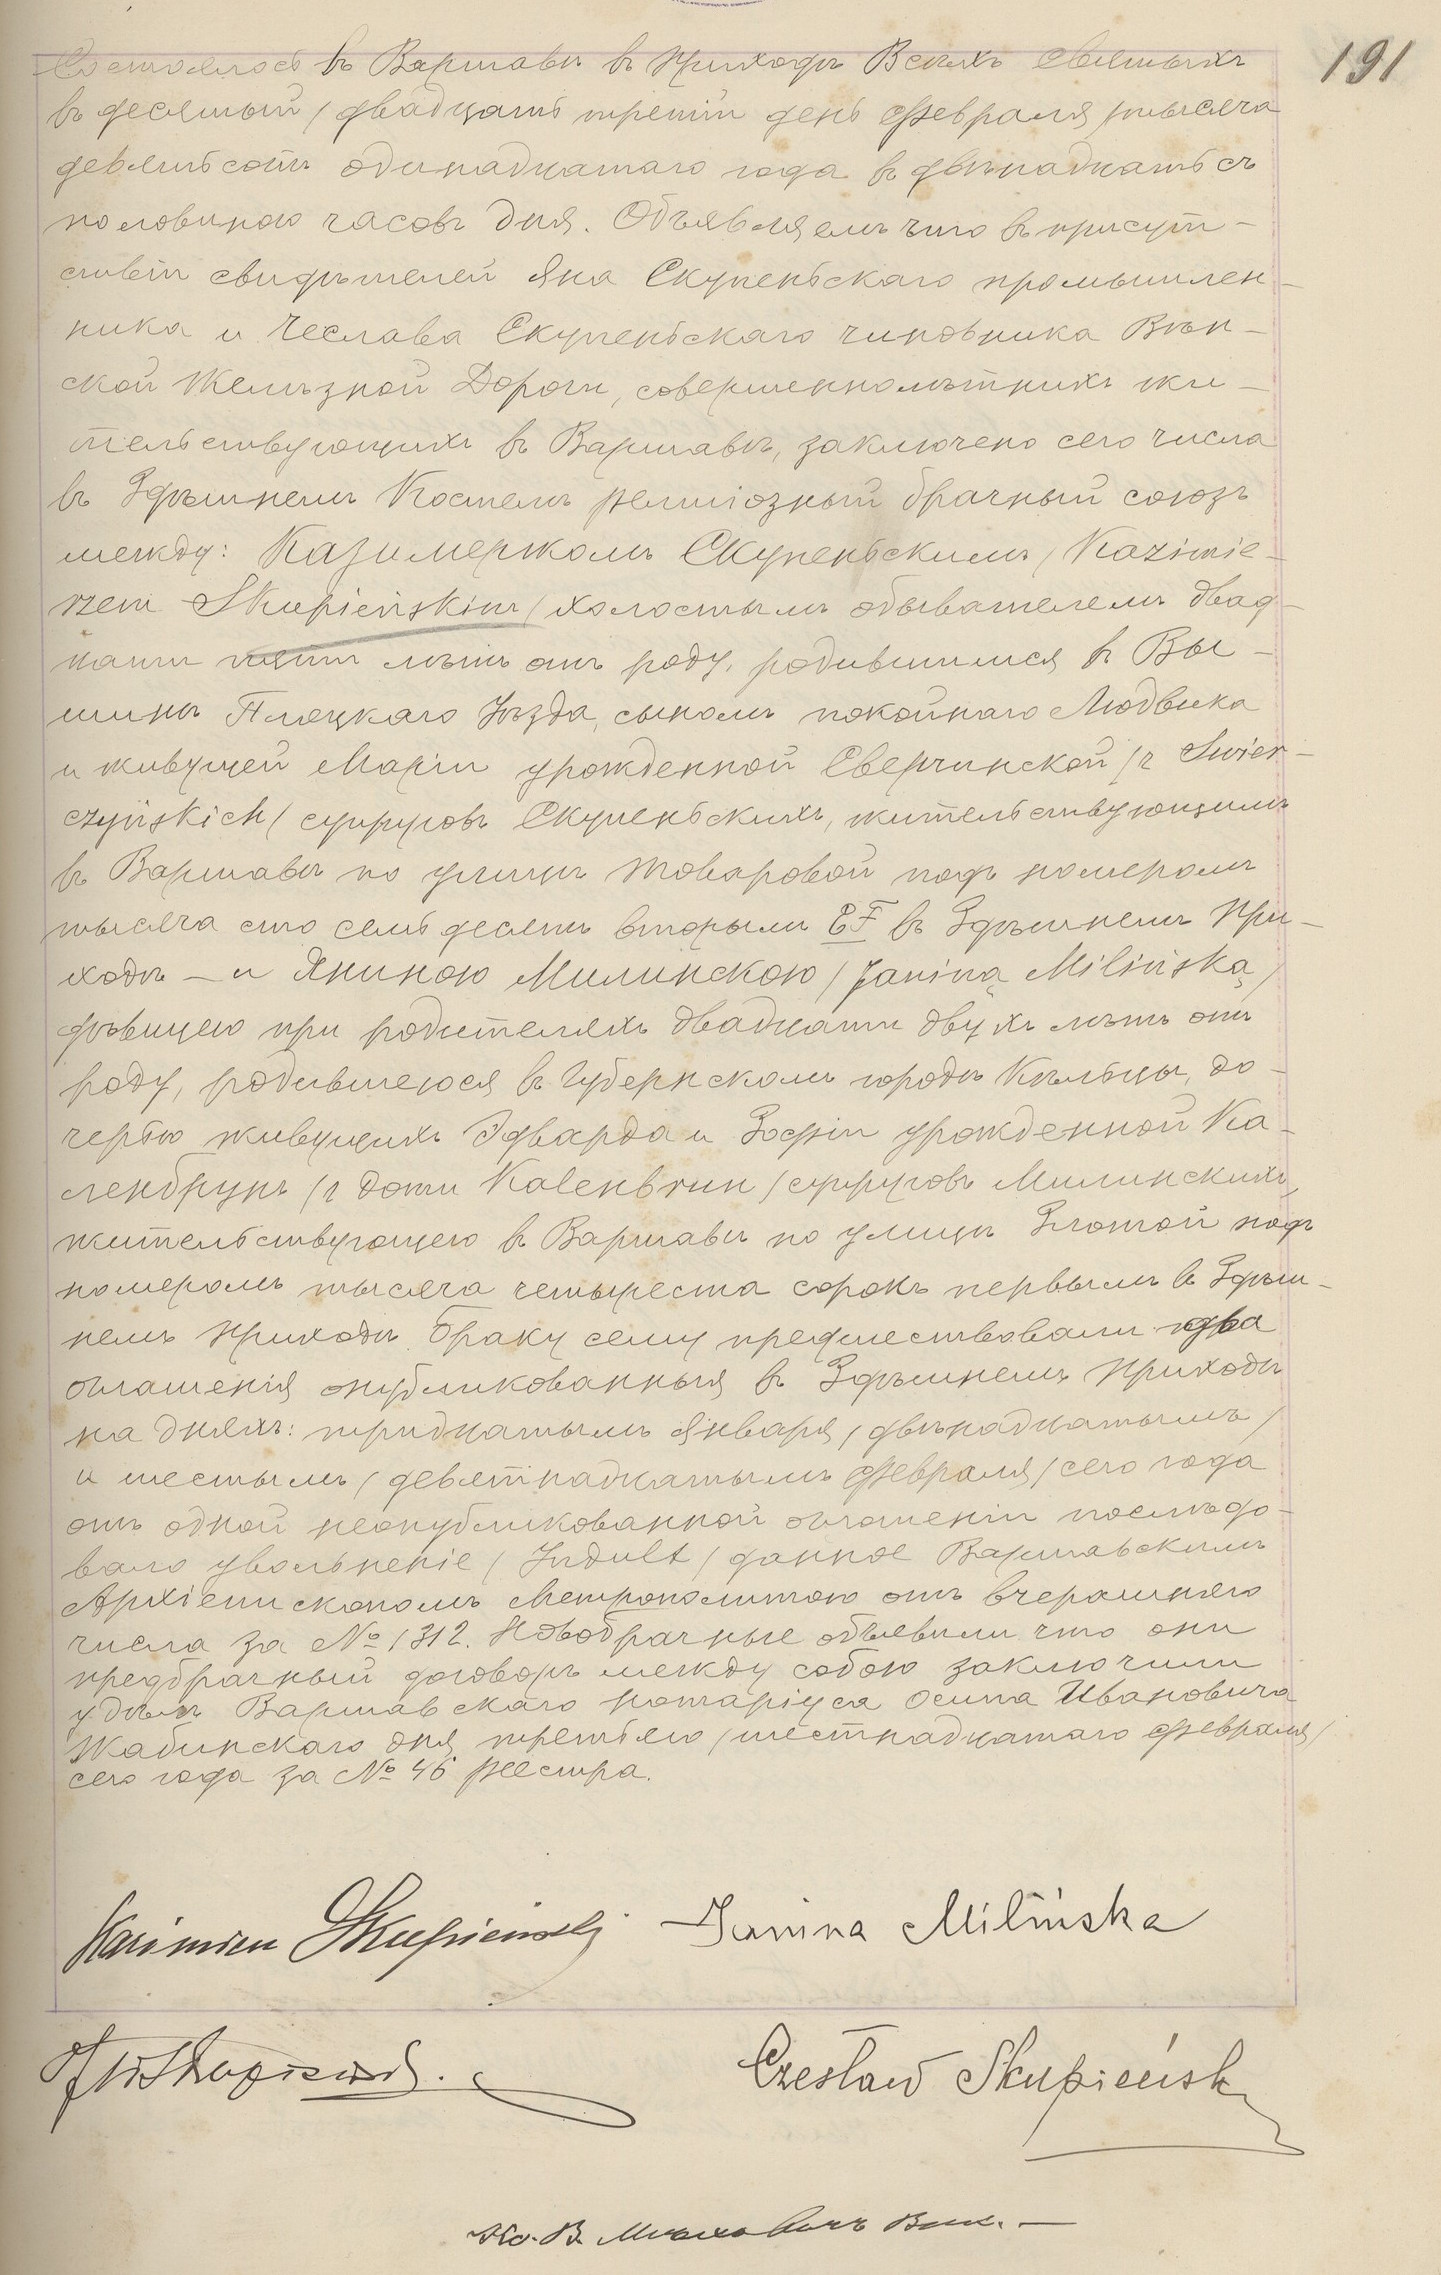 191
Состоялось въ Варшавѣ въ Приходѣ Всѣхъ Святыхъ
въ десятый / двадцать третій день Февраля / тысяча
девятьсотъ одинадцатаго года въ двѣнадцать съ
половиною часовъ дня. Объявляемъ что въ присут-
ствіи свидѣтелей Яна Скупеньскаго промышлен-
ника и Чеслава Скупеньскаго чиновника Вѣн-
ской Желѣзной Дороги, совершеннолѣтнихъ жи-
тельствующихъ въ Варшавѣ, заключено сего числа
въ Здѣшнемъ Костелѣ религіозный брачный союзъ
между: Казимержомъ Скупеньскимъ / Kazimie-
rzem Skupieńskim / холостымъ обывателемъ двад-
цати пяти лѣтъ отъ роду, родившимся въ Вы-
шинѣ Плоцкаго Уѣзда, сыномъ покойнаго Людвика
и живущей Маріи урожденной Сверчинской / z Swier-
czyńskich / супруговъ Скупеньскихъ, жительствующимъ
въ Варшавѣ по улицѣ Товаровой подъ номеромъ
тысяча сто семьдесятъ вторымъ EF въ Здѣшнемъ При-
ходѣ – и Яниною Милинскою / Janiną Milińską /
дѣвицею при родителяхъ двадцати двухъ лѣтъ отъ
роду, родившеюся въ Губернскомъ городѣ Кѣльцы, до-
черью живущихъ Эдварда и Зофіи урожденной Ка-
ленбрунъ / z domu Kalenbrun / супруговъ Милинскихъ,
жительствующею въ Варшавѣ по улицѣ Злотой подъ
номеромъ тысяча четыреста сорокъ первымъ въ Здѣш-
немъ Приходѣ. Браку сему предшествовали два
оглашенія опубликованныя въ Здѣшнемъ Приходѣ
на дняхъ: тридцатымъ Января / двѣнадцатымъ /
и шестымъ / девятнадцатымъ Февраля / сего года
отъ одной неопубликованной оглашеніи послѣдо-
вало увольненіе / Indult / данное Варшавскимъ
Архіепископомъ Метрополитою отъ вчерашняго
числа за № 1312. Новобрачные объявили что они
предбрачный договоръ между собою заключили
у дѣлъ Варшавскаго нотаріуса Осипа Ивановича
Жабинскаго дня третьяго / шестнадцатаго Февраля /
сего года за № 46 реестра.
Kazimierz Skupieński Janina Milińska
Skupieński. Czesław Skupieński
Кс. В.